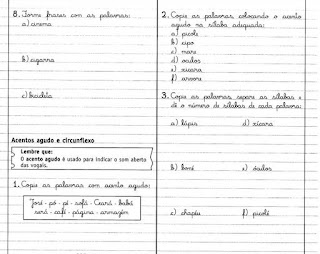 8. Forme frases com as palavras:
a) cinema
b) cigarra
c) bicicleta
Acentos agudo e circunflexo
Lembre que:
O acento agudo é usado para indicar o som aberto
das vogais.
1. Copie as palavras com acento agudo:
José - pó - pé - sofá - Ceará - babá
será - café - página - armazém
2. Copie as palavras, colocando o acento
agudo na sílaba adequada:
a) picole
b) cipo
c) mare
d) oculos
e) xicara
f) arvore
3. Copie as palavras, separe as sílabas e
dê o número de sílabas de cada palavra:
a) lápis
d) xícara
b) boné
e) óculos
c) chapéu
f) picolé